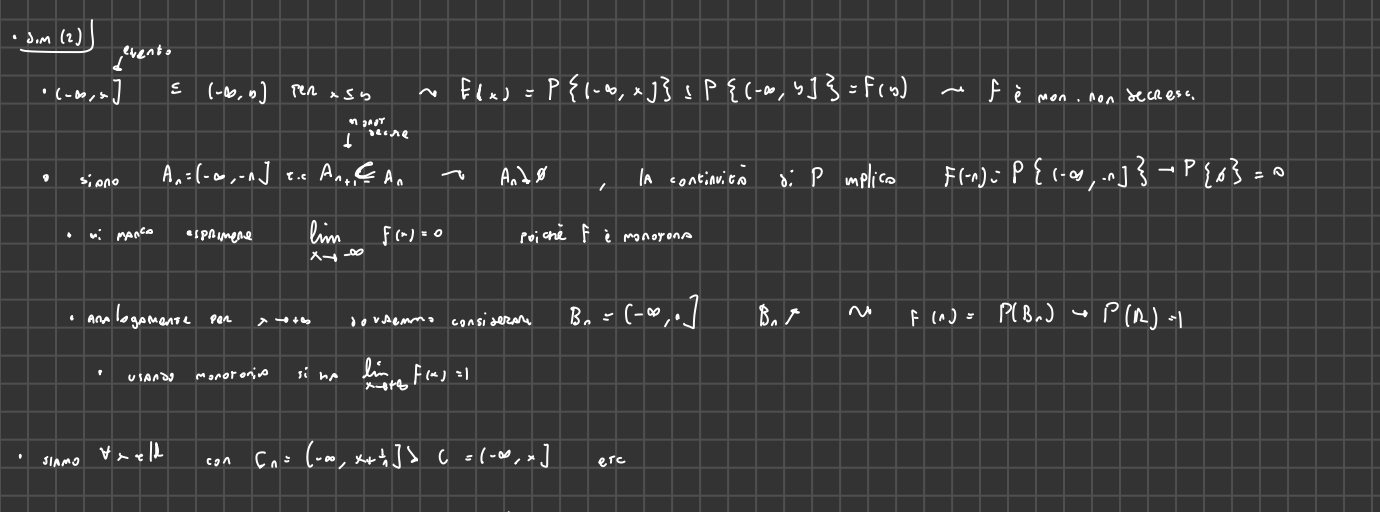 • dim (2)
evento
• (-∞, x] ⊆ (-∞, y] per x ≤ y ~ F(x) = P{(-∞, x]} ≤ P{(-∞, y]} = F(y) ~ F è mon. non decresc.
monot decre
• siano A_n = (-∞, -n] t.c A_{n+1} ⊆ A_n ~ A_n ↘ ∅ , la continuità di P implica F(-n) = P{(-∞, -n]} → P{∅} = 0
• mi manca esprimere lim_{x→-∞} F(x) = 0 poiché F è monotona
• Analogamente per x→+∞ dovremmo considerare B_n = (-∞, n] B_n ↗ ~ F(n) = P(B_n) → P(R) = 1
• usando monotonia si ha lim_{x→+∞} F(x) = 1
• siamo ∀x∈ℝ con C_n = (-∞, x+1/n] ↘ C = (-∞, x] etc